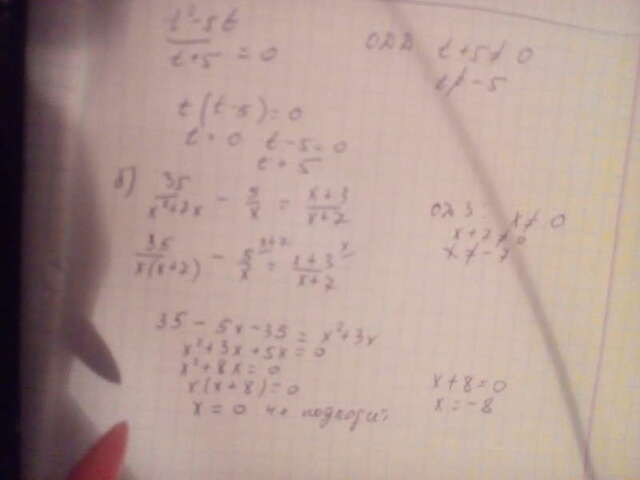 t²-5t / t+5 = 0 ОДЗ t+5≠0
t≠-5
t(t-5)=0
t=0 t-5=0
t=5
б) 35/x²+2x - 5/x = x+3/x+2 ОДЗ x≠0
x+2≠0
x≠-2
35/x(x+2) - 5/x = x+3/x+2
35-5x-35=x²+3x
x²+3x+5x=0
x²+8x=0
x(x+8)=0 x+8=0
x=0 не подходит x=-8